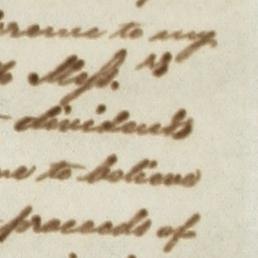 to my
Mess. rs
dividends
me to believe
proceeds of